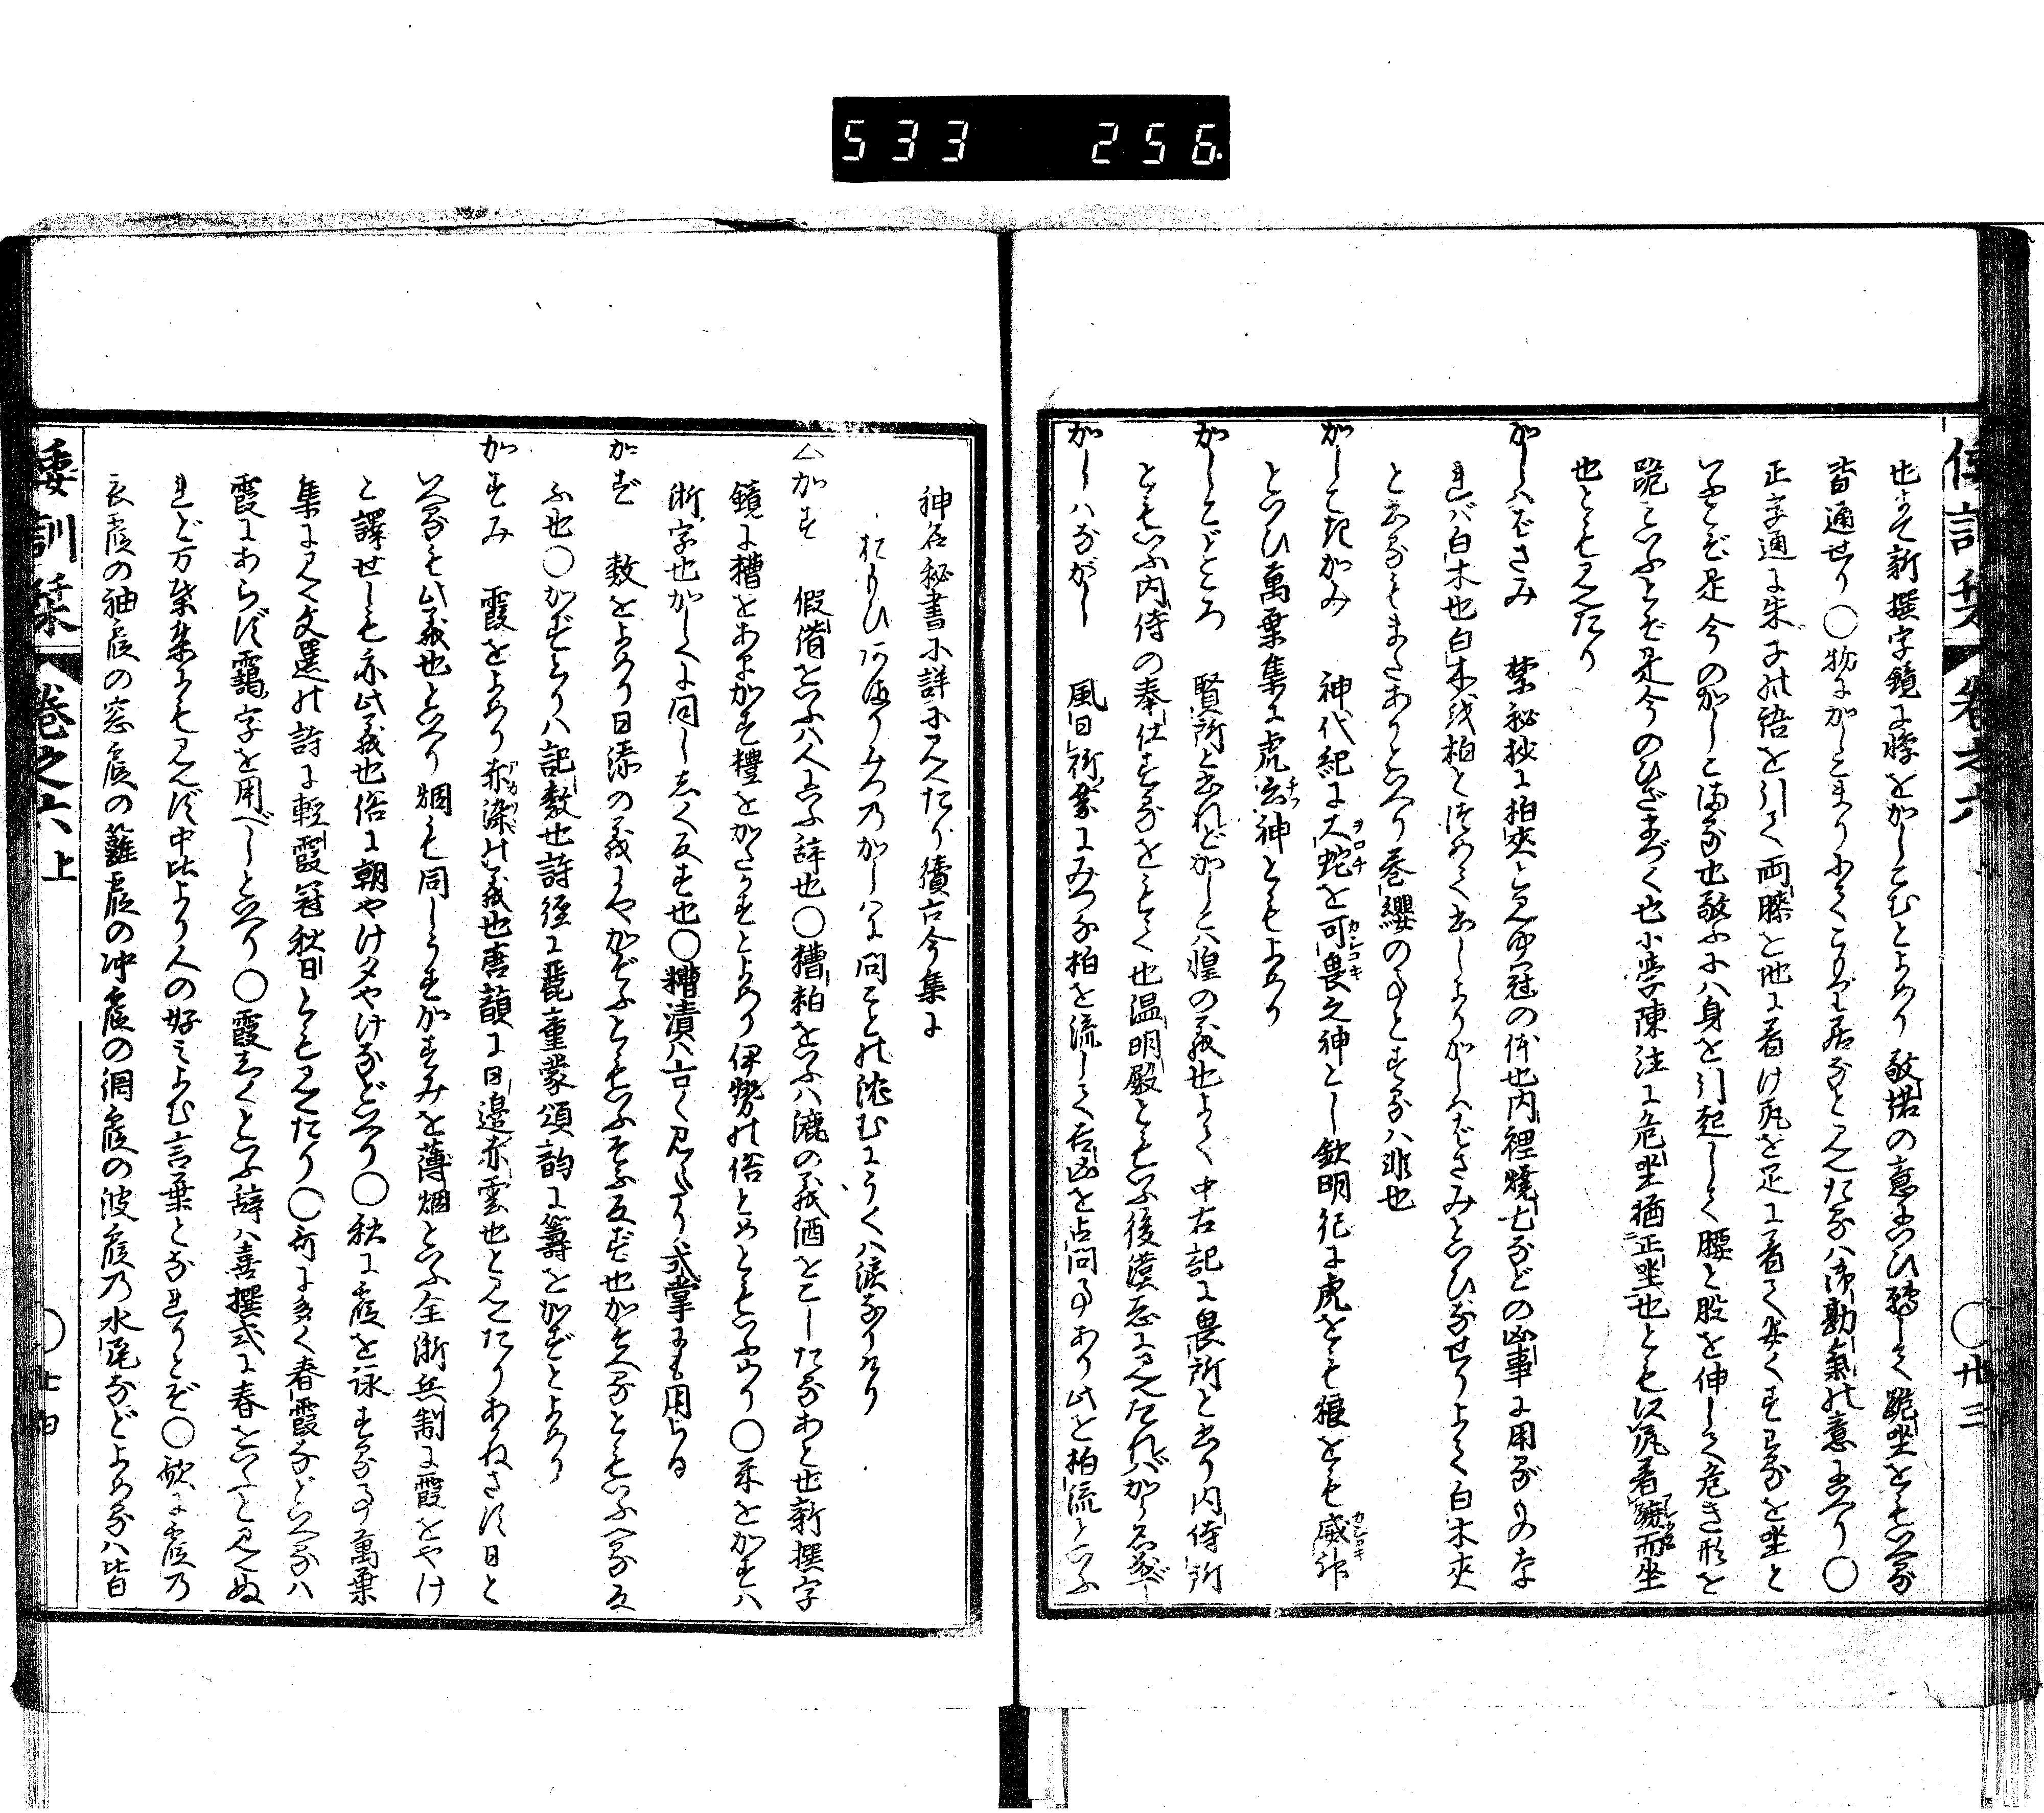 533 256.
倭訓栞 巻之六 〇廿三
也よて新撰字鏡に悸をかしこむとよめり 敬揩の意よりいひ轉して跪坐をもいへる
皆通せり〇物にかしこまりふてこもり居ることみえたるハ御勘氣の意といへり〇
正字通に朱子の語を引て両膝を地に着け尻を足に着て安くすわるを坐と
いふとぞ是今のかしこまる也敬ふにハ身を引起して腰と股を伸して危き形を
跪といふとぞ是今のひざまづく也小學陳注に危坐猶正坐也とも以尻着蹠而坐
也ともみえたり
かしハばさみ 禁秘抄に柏夾と見ゆ冠の体也内裡焼亡などの凶事に用るものな
れバ白木也白木を柏とつゞめて書しよりかしハばさみといひなせりよて白木夾
とあるもまたありといへり巻纓の事とするハ非也
かしこきかみ 神代紀に大蛇を可畏之神とし欽明紀に虎をも狼をも威神
といひ萬葉集に虎云神ともよめり
かしこどころ 賢所と書れどかしこハ惶の義也よて中右記に畏所と書り内侍所
ともいふ内侍の奉仕するをもて也温明殿ともいふ後漢志にみえたれバかり名なバ
かしハながし 風土記にみつの柏を流して吉凶を占問事あり此を柏流といふ
神名秘書に詳にみえたり續古今集に
おもひあまりみつのかしハに問ことの沈むにうくハ涙なりけり
△かす 假借をいふハ人に与ふ辞也〇糟粕をいふハ漉の義酒をこしたるあと也新撰字
鏡に糟をあまかす糟をかたかすとよめり伊勢の俗とめともいふめり〇米をかすハ
淅字也かしくに同ししく反す也〇糟漬ハ古く見えたり式掌にも用らる
かず 数をよめり日添の義にやかぞふともいふそふ反ず也かそへるともいふへる反
ふ也〇かずとりハ記数也詩經に麗童蒙頌韵に籌をかずとよめり
かすみ 霞をよめり赤染の義也唐韻に日邊赤雲也とみえたりあねさす日と
いへるも此義也といへり烟も同しうすかすみを薄烟といふ全浙兵制に霞をやけ
と譯せしも亦此義也俗に朝やけ夕やけなどいへり〇秋に霞を詠する事萬葉
集にみえ文選の詩に輕霞冠秋日ともみえたり〇哥に多く春霞などいへるハ
霞にあらず靄字を用べしといへり〇霞しくといふ辞ハ喜撰式に春をいふと見えぬ
れど万葉集にもみえず中比より人の好みよむ言葉となれりとぞ〇歌に霞の
衣霞の袖霞の窓霞の籬霞の沖霞の網霞の波霞の水尾などよめるハ皆
倭訓栞 巻之六上 〇廿四